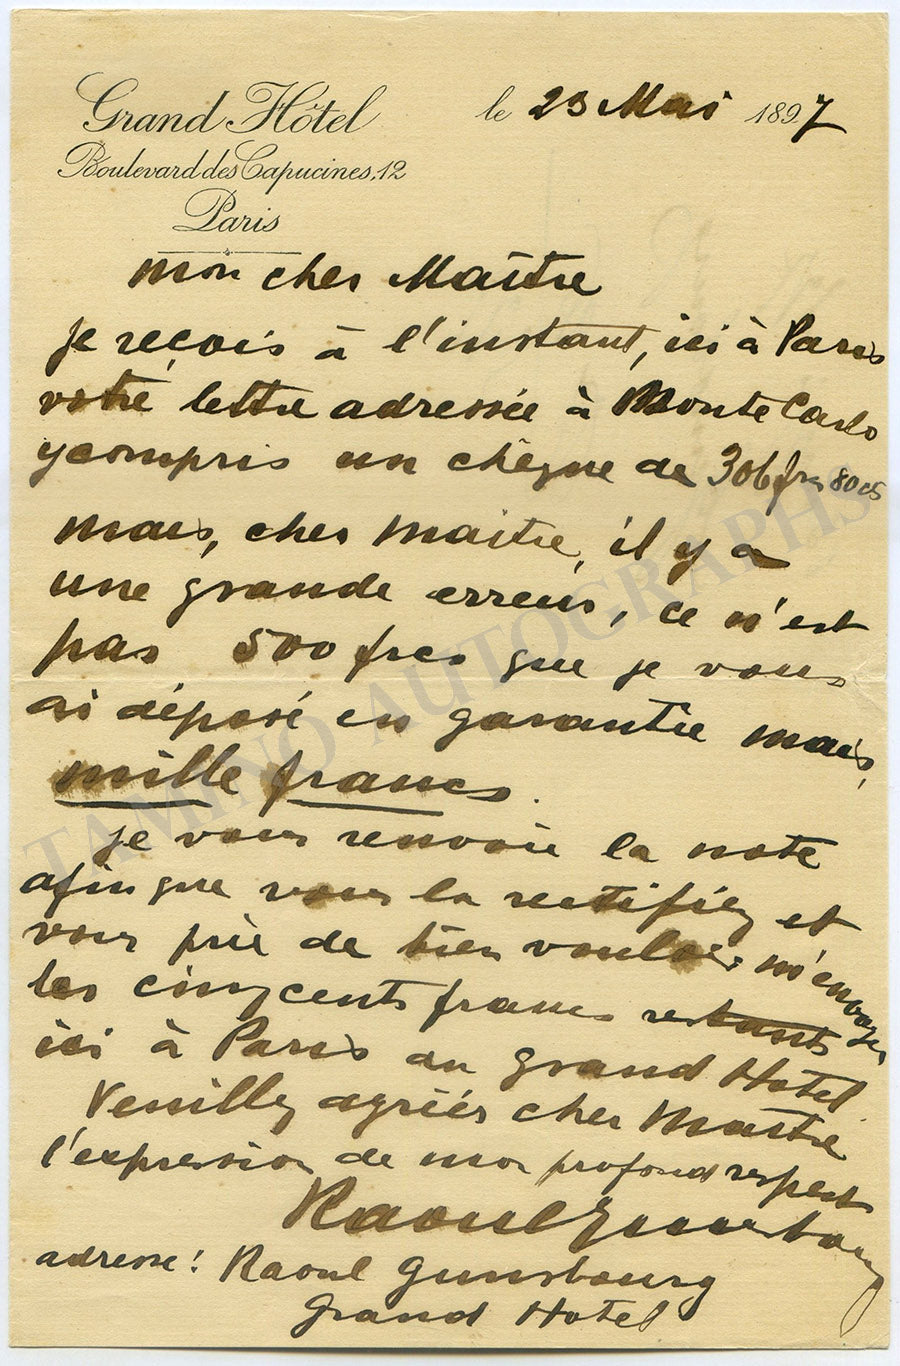 Grand Hôtel
Boulevard des Capucines, 12
Paris
le 23 Mai 1897
Mon cher Maître
je reçois à l'instant, ici à Paris
votre lettre adressée à Monte Carlo
y compris un chèque de 306 frs 80 cs
mais, cher Maître, il y a
une grande erreur, ce n'est
pas 500 frcs que je vous
ai déposé en garantie mais,
mille francs.
je vous renvoie la note
afin que vous la rectifiez et
vous prie de bien vouloir m'envoyer
les cinq cents francs restants
ici à Paris au grand Hotel
Veuillez agréer cher Maître
l'expression de mon profond respect
Raoul Gunsbourg
adresse: Raoul Gunsbourg
Grand Hotel
TAMINO AUTOGRAPHS